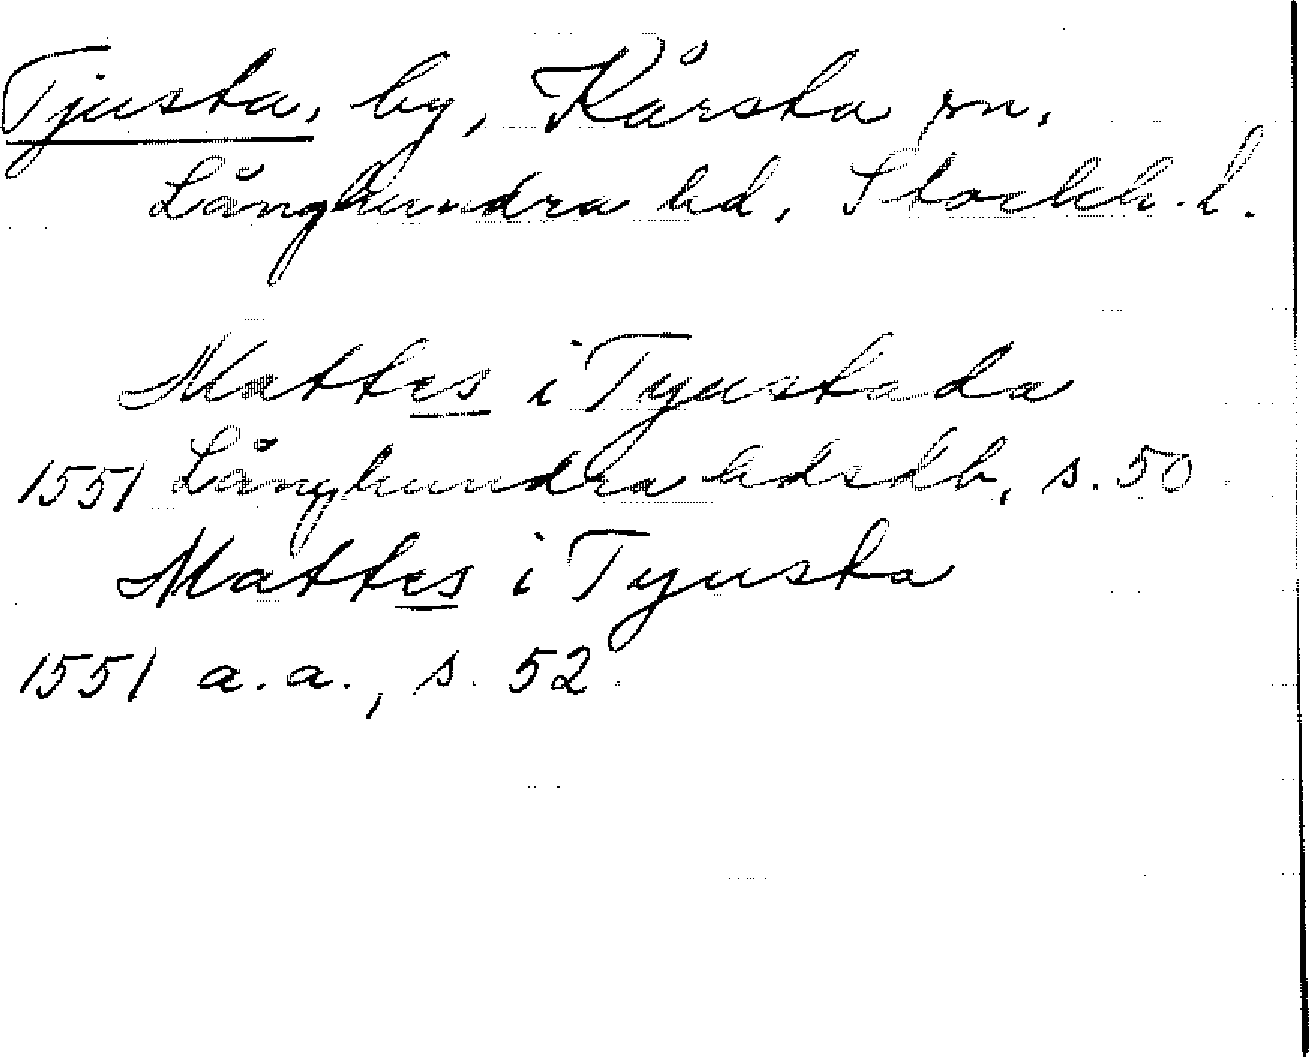 Tjusta, by, Kårsta sn,
Långhundra hd, Stockh. l.
Mattes i Tyustada
1551 Långhundra hdsdb, s. 50
Mattes i Tyusta
1551 a.a., s. 52.